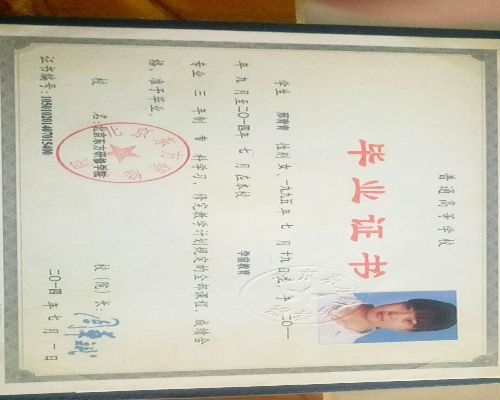 普通高等学校
毕业证书
学生 邢青青 性别女,一九九五年七月十九日生,于二〇一
年九月至二〇一四年七月在本校 学前教育
专业 三年制 专科学习,修完教学计划规定的全部课程,成绩合
格,准予毕业。
校 名:北京东方研修学院
校(院)长:
证书编号:105010201407015400
二〇一四年七月一日